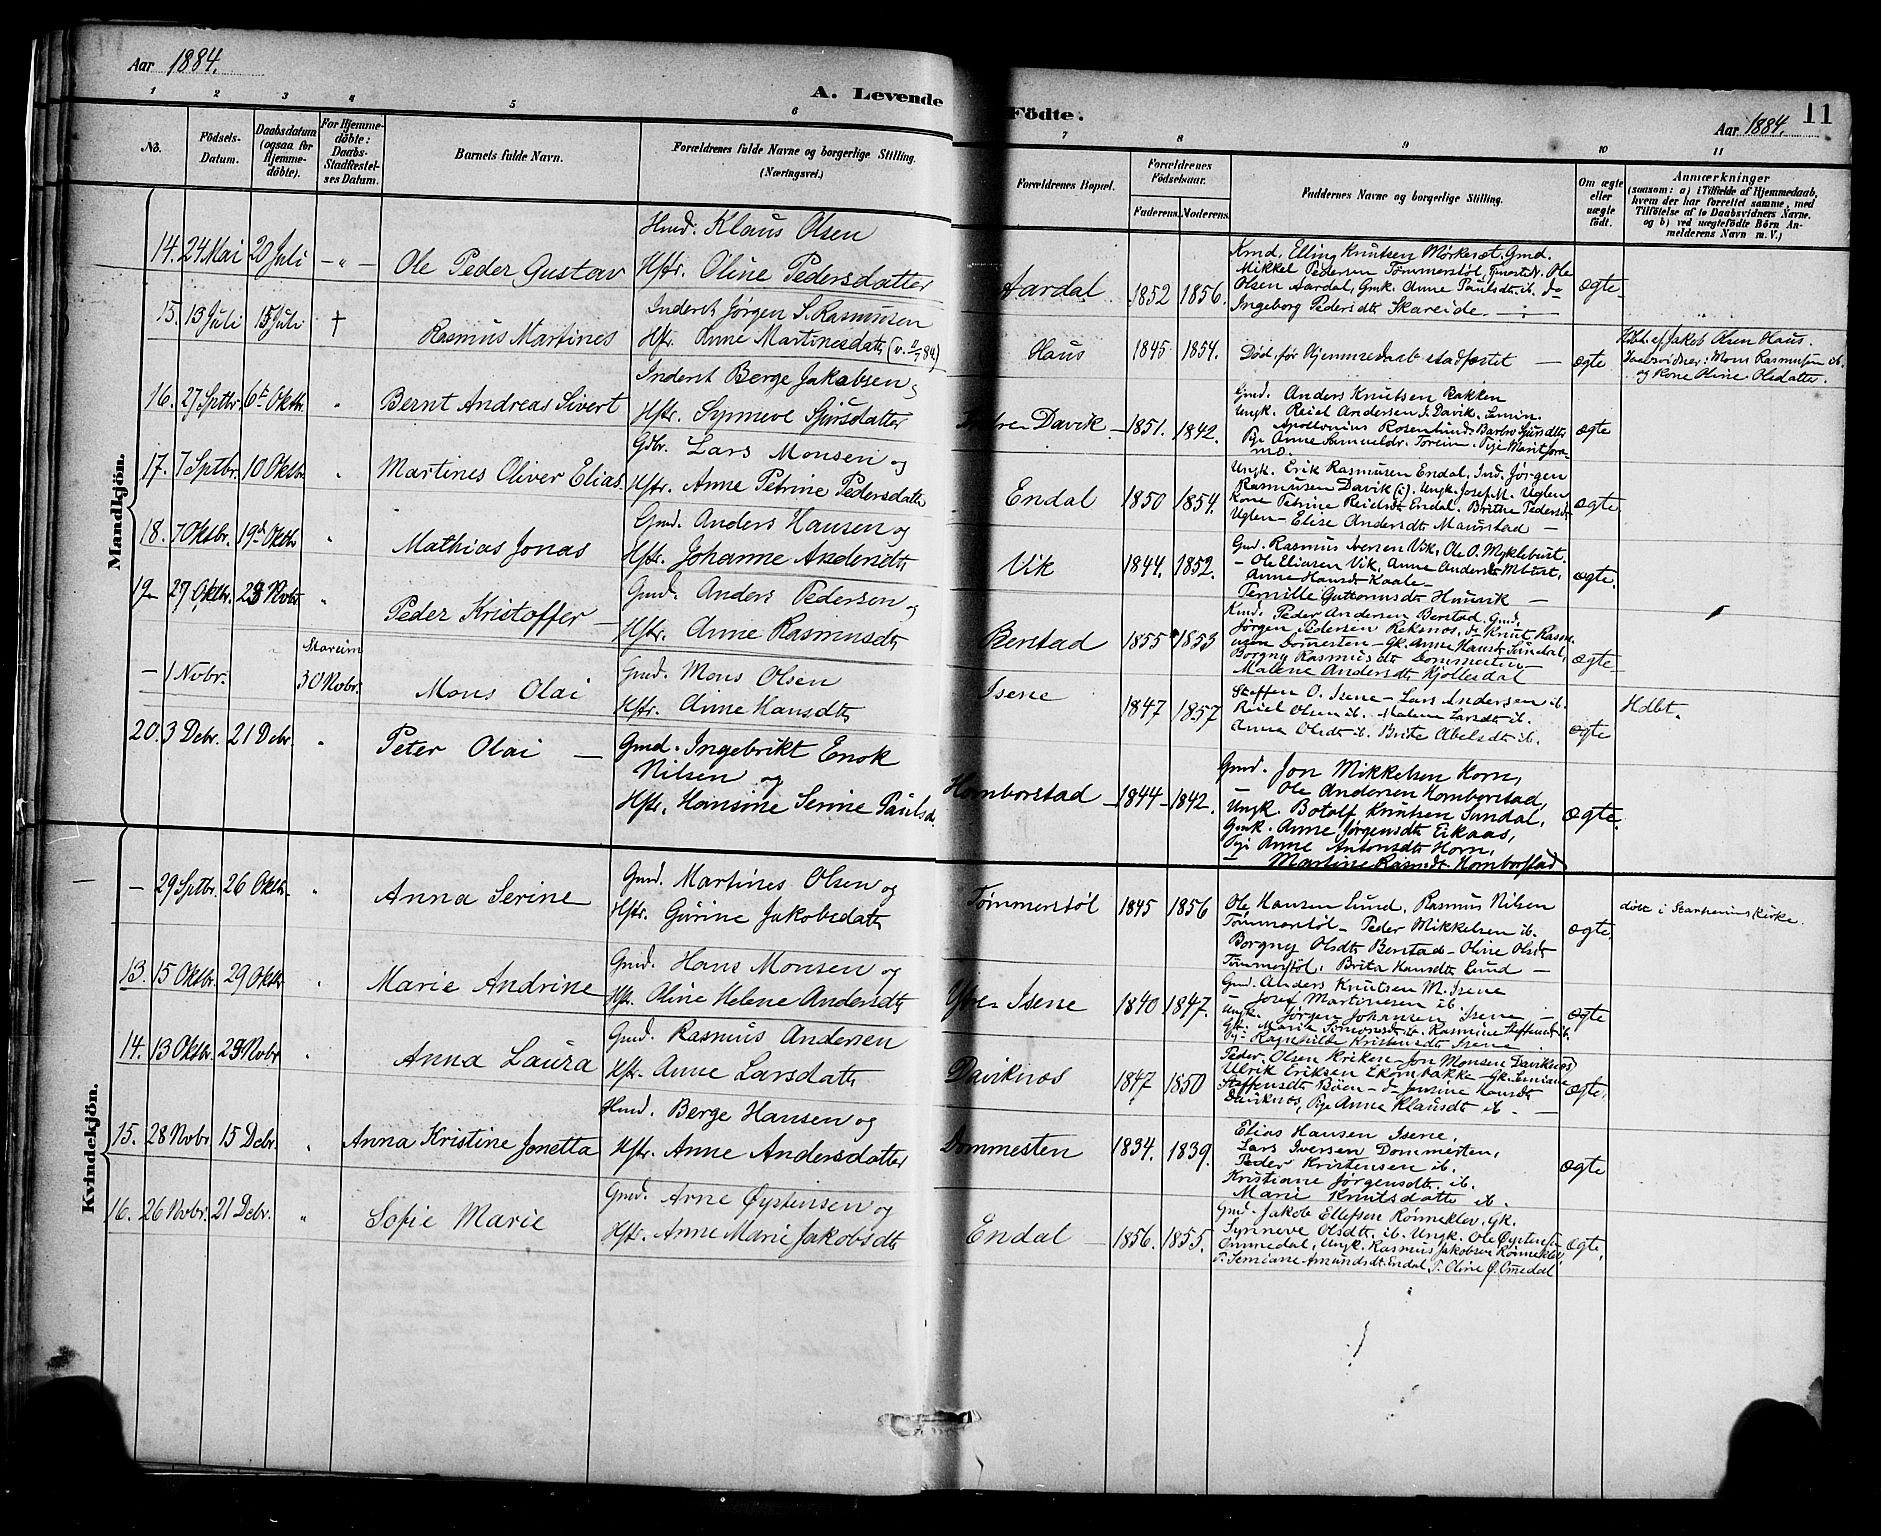 Aar 1884.
A. Levende Födte.
Aar 1884.
11
1 2 3 4 5 6 7 8 9 10 11
No.
Födsels-Datum.
Daabsdatum (ogsaa for Hjemmedöbte).
For Hjemmedöbte: Daabs-Stadfæstelses Datum.
Barnets fulde Navn.
Forældrenes fulde Navne og borgerlige Stilling. (Næringsvei.)
Forældrenes Bopæl.
Forældrenes Födselsaar.
Faderens. Moderens.
Faddernes Navne og borgerlige Stilling.
Om ægte eller uægte födt.
Anmærkninger
(saasom: a) i Tilfælde af Hjemmedaab, hvem der har forrettet samme, med Tilföielse af to Daabsvidners Navne, og b) ved uægtefödte Börn Anmelderens Navn m. V.)
Mandkjön.
14. 24 Mai 20 Juli — " — Ole Peder Gustav
Hmd. Klaus Olsen
Hstr. Oline Pedersdatter
Aardal 1852 1856.
Kmd. Elling Knutsen Mörkesæt, Gmd.
Mikkel Pedersen Tömmerstöl, Ole
Olsen Aardal, Gmk. Anne Paulsdt. ib. do
Ingeborg Pedersdt. Skareide
ægte
15. 13 Juli 15 Juli † Rasmus Martines
Inderst Jørgen S. Rasmussen
Hstr. Anne Martinesdatt.
Haus 1845 1854.
Död för Hjemmedaab stadfæstet —
ægte
Hdbt. af Jakob Olsen Haus.
Daabsvidner: Mons Rasmussen ib.
og Kone Oline Olsdatter.
16. 27 Sptbr. 6te Oktbr. " Bernt Andreas Sivert
Inderst Berge Jakobsen og
Hstr. Synneve Sjursdatter
Davik 1851. 1842.
Gmd. Anders Knutsen Bakken
Ungk. Reiel Andersen I. Davik.
Apollonius Rosenlund. Barbro Sjursdtr
Pge Anne Samuelsdr. Torein. Pige Marit
ægte
17. 7 Sptbr. 10 Oktbr. " Martines Oliver Elias
Gdbr. Lars Monsen og
Hstr. Anne Petrine Pedersdatter
Endal 1850 1854.
Ungk. Erik Rasmusen Endal. Ind. Jørgen
Rasmusen Davik (i). Ungk. Josef M. Uglen
Kone Petrine Reielsdt. Endal. Brithe Pedersdt
Uglen — Elise Andersdt. Maurstad —
ægte.
18. 7 Oktbr. 19de Oktbr " Mathias Jonas
Gmd. Anders Hansen og
Hstr. Johanne Andersdtr
Vik 1844. 1852.
Gmd. Rasmus Iversen Vik, Ole O. Myklebust.
— Ole Eliasen Vik, Anne Andersdt. Mbust,
Anne Hansdt. Kaale —
Pernille Guttormsdt.
ægte.
19— 27 Oktbr. 23 Novbr " Peder Kristoffer —
Gmd. Anders Pedersen og
Hstr. Anne Rasmusdtr
Berstad 1855 1853
Kmd. Peder Andersen Berstad, Gmd.
Jørgen Pedersen Reksnos, do Knut Rasmusen
Dommesten — Gk. Anne Hansdt. Sundal,
Borgny Rasmusdt. Dommesten —
Malene Andersdt. Kjöllesdal
ægte
— 1 Novbr. 30 Novbr. Mons Olai
Gmd. Mons Olsen
Hstr. Anne Hansdtr
Isene 1847 1857
Steffen O. Isene — Lars Andersen ib.
Reiel Olsen ib. Malene Larsdt. ib.
Anna Olsdt. ib. Brite Abelsdt. ib.
ægte
Hdbt.
20. 3 Debr. 21 Debr. " Peter Olai —
Gmd. Ingebrikt Enok
Nilsen og
Hstr. Hansine Serine Paulsd.
Hornborstad 1844 1842.
Gmd. Jon Mikkelsen Horn,
— Ole Andersen Hornborstad,
Ungk. Botolf Knutsen Sundal,
Gmk. Anne Jörgensdt. Eikaas,
Pige Anne Antonsdt. Horn,
— Martine Rasmdt. Hornborstad
ægte.
Kvindekjön.
— 29 Sptbr. 26 Oktbr. " Anna Serine
Gmd. Martines Olsen og
Hstr. Gurine Jakobsdatt.
Tømmerstøl 1845 1856
Ole Hansen Lund, Rasmus Nilsen
Tömmerstöl — Peder Mikkelsen ib.
Borgny Olsdt. Berstad — Oline Olsdt
Tömmerstöl. Brita Hansdt. Lund —
ægte.
13. 15 Oktbr. 29 Oktbr " Marie Andrine
Gmd. Hans Monsen og
Hstr. Oline Helene Andersdtr
Isene 1840 1847.
Gmd. Anders Knutsen M. Isene
— Josef Martinesen ib.
Ungk. Jørgen Johansen Isene —
Gk. Maria Simonsdt. ib. Rasmine Steffensdt. ib.
Pig. Ragnhilde Kristensdt. Isene
ægte
14. 13 Oktbr. 23 Novbr " Anna Laura
Gmd. Rasmus Andersen
Hstr. Anne Larsdatt.
Daviknos 1847 1850
Peder Olsen Kriken — Jon Monsen Daviknos
Ulrik Eriksen — Gk.
Staffensdt. Böen — do Jensine Hansdt
Daviknos, Pige Anna Klausdt. ib. —
ægte.
15. 28 Novbr 15 Debr. " Anna Kristine Jonetta
Hmd. Berge Hansen og
Hstr. Anne Andersdatter
Dommesten 1834. 1839.
Elias Hansen Isene,
Lars Iversen Dommesten,
Peder Kristensen ib.
Kristiane Jørgensdt. ib.
Marie Knutsdatter ib.
ægte
16. 26 Novbr. 21 Debr. " Sofie Marie
Gmd. Arne Øystensen og
Hstr. Anne Marie Jakobsdt.
Endal 1856. 1855.
Gmd. Jakob Ellefsen Rönneklev, Gk.
Synneve Olsdt. ib. Ungk. Ole Øystens.
Ommedal, Ungk. Rasmus Jakobsen Rönneklev
P. Semiane Amundsdt. Endal P. Oline Ø. Omedal
ægte.